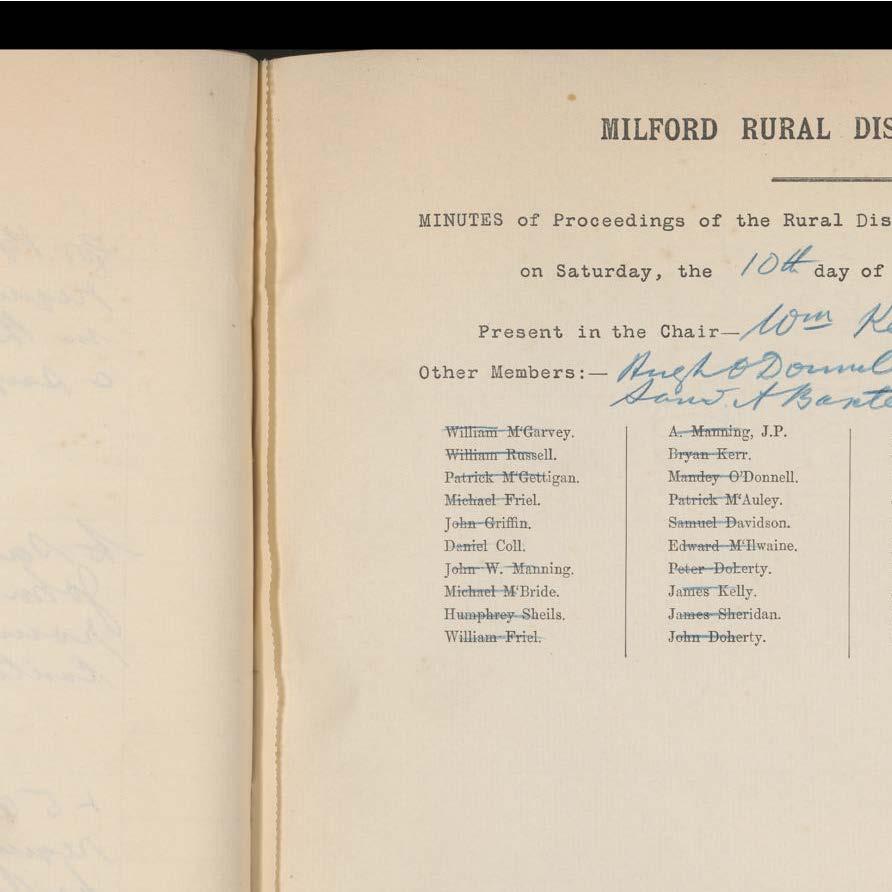 MILFORD RURAL DIS
MINUTES of Proceedings of the Rural Dis
on Saturday, the 10th day of
Present in the Chair— Wm Ke
Other Members:— Hugh O Donnell
Saml A Baxte
William M'Garvey.
William Russell.
Patrick M'Gettigan.
Michael Friel.
John Griffin.
Daniel Coll.
John W. Manning.
Michael M'Bride.
Humphrey Sheils.
William Friel.
A. Manning, J.P.
Bryan Kerr.
Mandey O'Donnell.
Patrick M'Auley.
Samuel Davidson.
Edward M'Ilwaine.
Peter Doherty.
James Kelly.
James Sheridan.
John Doherty.